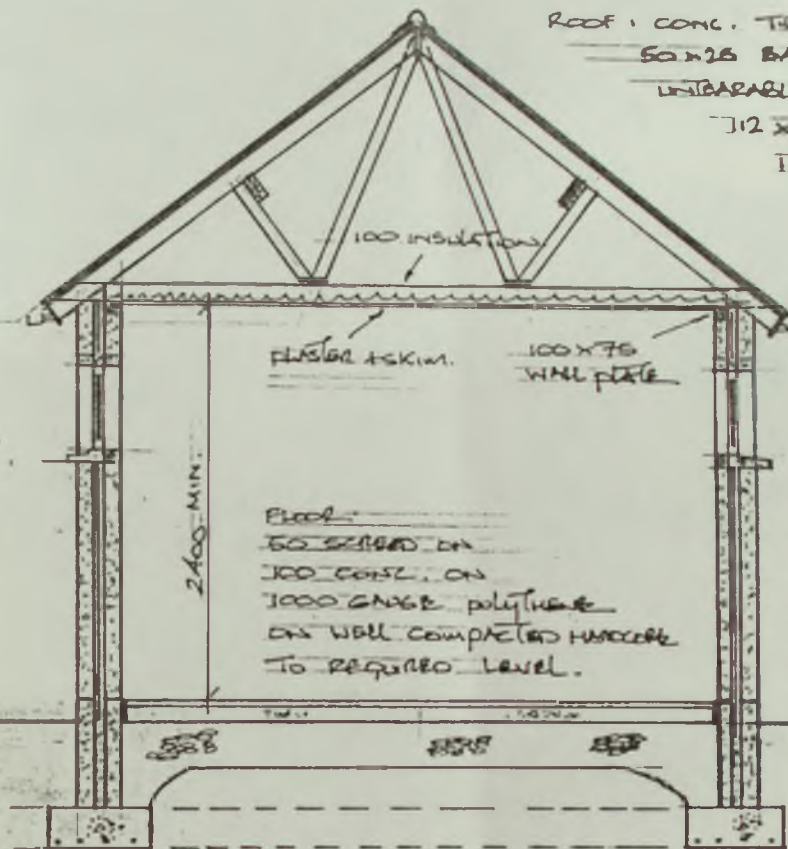 ROOF: CONC.
50 x 25
UNTEARABLE
100 INSULATION
PLASTER + SKIM.
100 x 75
WALL PLATE
2400 MIN.
FLOOR:
50 SCREED ON
100 CONC. ON
1000 GAUGE POLYTHENE
ON WELL COMPACTED HARDCORE
TO REQUIRED LEVEL.